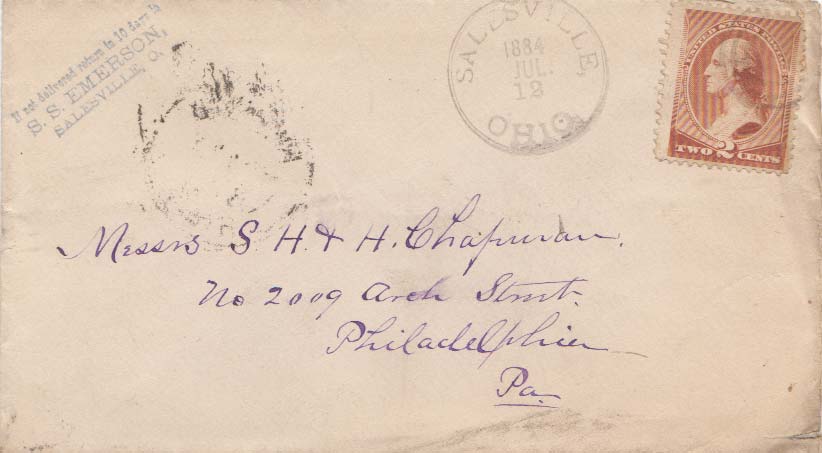 If not delivered return in 10 days to
S. S. EMERSON,
SALESVILLE, O.
SALESVILLE,
1884
JUL.
12
OHIO
UNITED STATES POSTAGE
TWO 2 CENTS
Messrs S H. & H. Chapman.
No 2009 Arch Street.
Philadelphia
Pa